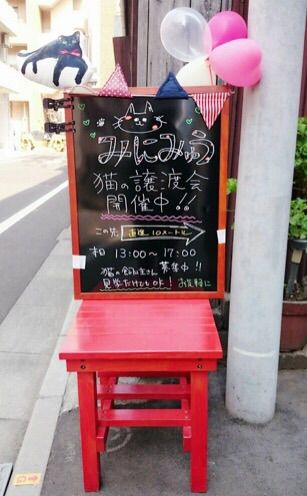 みにみゅう
猫の譲渡会
開催中!!
この先 直進10メートル
13:00〜17:00
猫の飼主さん 募集中!!
見学だけでもOK! お気軽に